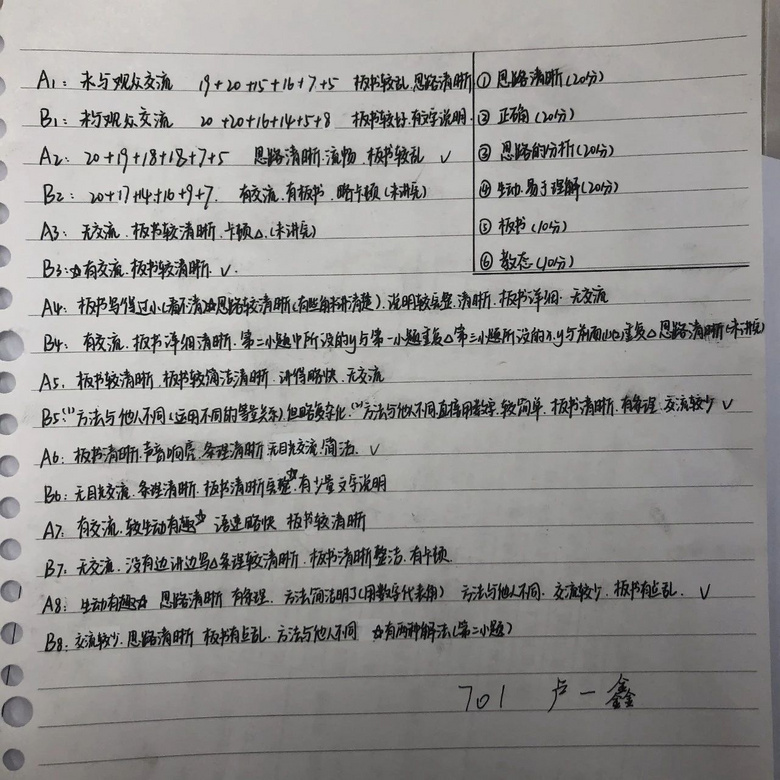 A1: 未与观众交流 19+20+15+16+7+5 板书较乱.思路清晰
① 思路清晰(20分)
B1: 未与观众交流 20+20+16+14+5+8 板书较好.有文字说明.
② 正确(20分)
A2: 20+19+18+18+7+5 思路清晰.流畅.板书较乱 ✓
③ 思路的分析(20分)
B2: 20+17+14+16+9+7. 有交流.有板书.略卡顿(未讲完)
④ 生动.易于理解(20分)
A3: 无交流.板书较清晰.卡顿△.(未讲完)
⑤ 板书(10分)
B3: ☆有交流.板书较清晰. ✓.
⑥ 教态(10分)
A4: 板书写得过小(看不清)☆思路较清晰(有些角料讲清楚).说明较完整.清晰.板书详细.无交流
B4: 有交流.板书详细清晰.第二小题中所设的y与第一小题重复△第三小题所设的x.y与前面也重复△思路清晰(未讲完)
A5. 板书较清晰.板书较简洁清晰.讲得略快.无交流
B5: (1)方法与他人不同(运用不同的等量关系)但略复杂化.(2)方法与他人不同.直接用数字.较简单.板书清晰.有条理.交流较少 ✓
A6: 板书清晰.声音响亮.条理清晰.无目光交流.简洁. ✓
B6: 无目光交流.条理清晰.板书清晰完整☆.有少量文字说明
A7: 有交流.较生动有趣☆ 语速略快 板书较清晰
B7. 无交流.没有边讲边写△条理较清晰.板书清晰整洁.有卡顿.
A8: 生动有趣☆ 思路清晰 有条理. 方法简洁明了(用数字代表角) 方法与他人不同. 交流较少. 板书有点乱. ✓
B8: 交流较少.思路清晰 板书有点乱. 方法与他人不同 ☆有两种解法(第二小题)
701 卢一鑫